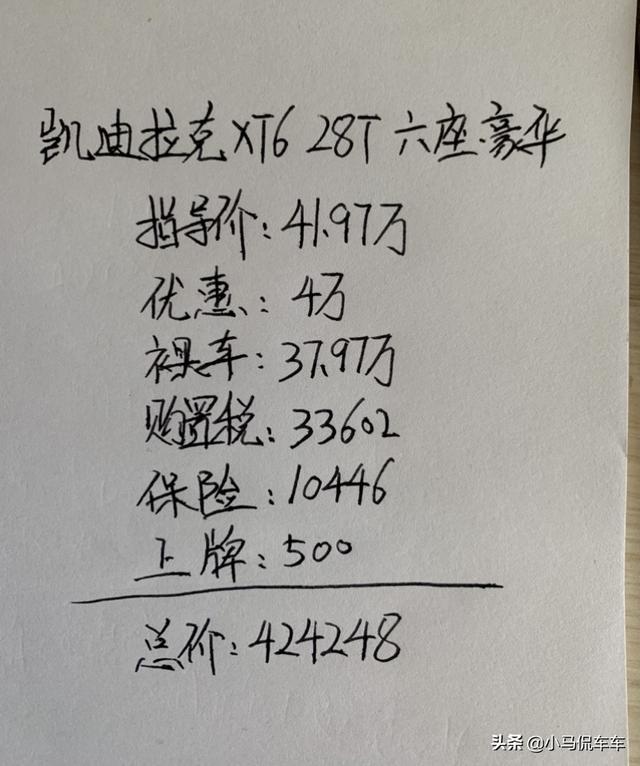 凯迪拉克XT6 28T 六座豪华
指导价：41.97万
优惠：4万
裸车：37.97万
购置税：33602
保险：10446
上牌：500
总价：424248
头条 @小马侃车车